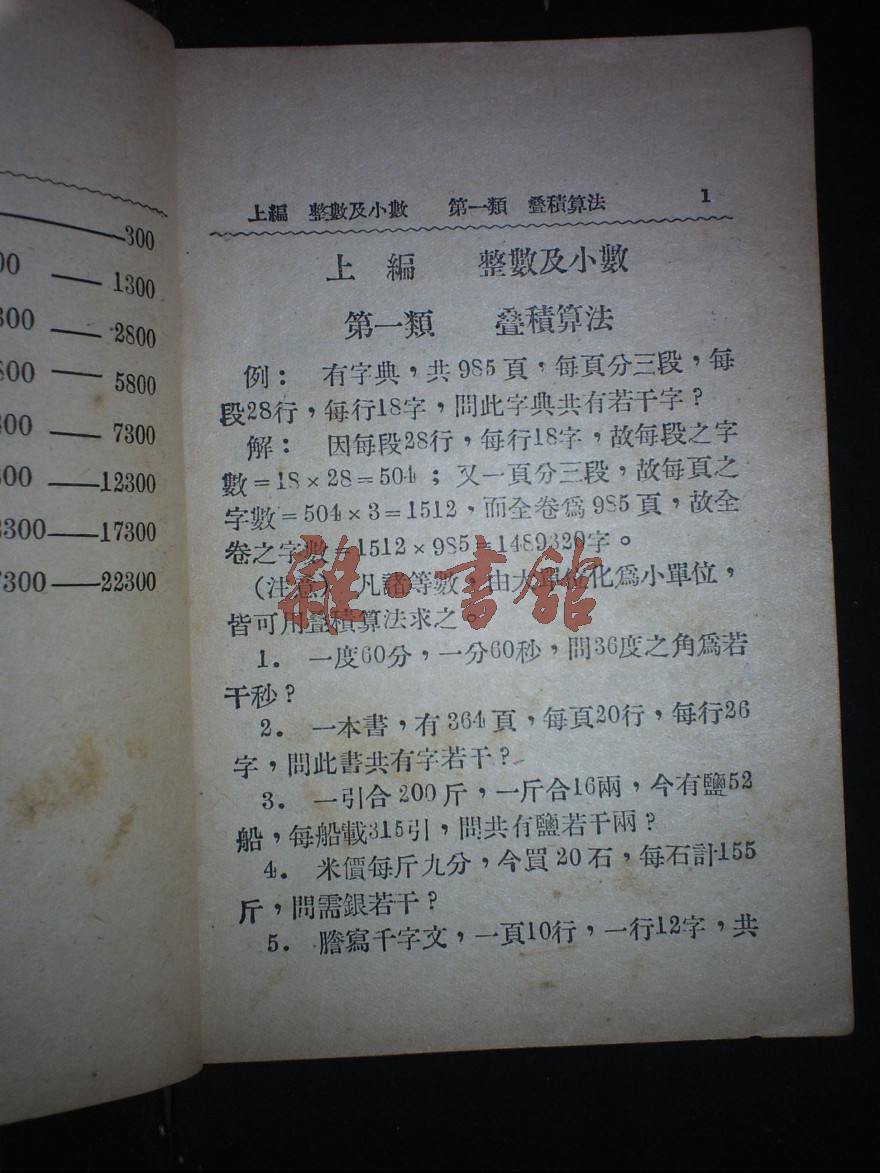 300
00 —— 1300
300 —— 2800
600 —— 5800
300 —— 7300
300 —— 12300
3300 —— 17300
7300 —— 22300
上編 整數及小數 第一類 叠積算法 1
上編 整數及小數
第一類 叠積算法
例： 有字典，共985頁，每頁分三段，每
段28行，每行18字，問此字典共有若干字？
解： 因每段28行，每行18字，故每段之字
數=18×28=504；又一頁分三段，故每頁之
字數=504×3=1512，而全卷爲985頁，故全
卷之字數=1512×985=1489320字。
(注意) 凡諸等數，由大單位化爲小單位，
皆可用叠積算法求之。
1. 一度60分，一分60秒，問36度之角爲若
干秒？
2. 一本書，有364頁，每頁20行，每行26
字，問此書共有字若干？
3. 一引合200斤，一斤合16兩，今有鹽52
船，每船載315引，問共有鹽若干兩？
4. 米價每斤九分，今買20石，每石計155
斤，問需銀若干？
5. 謄寫千字文，一頁10行，一行12字，共
雜·書館